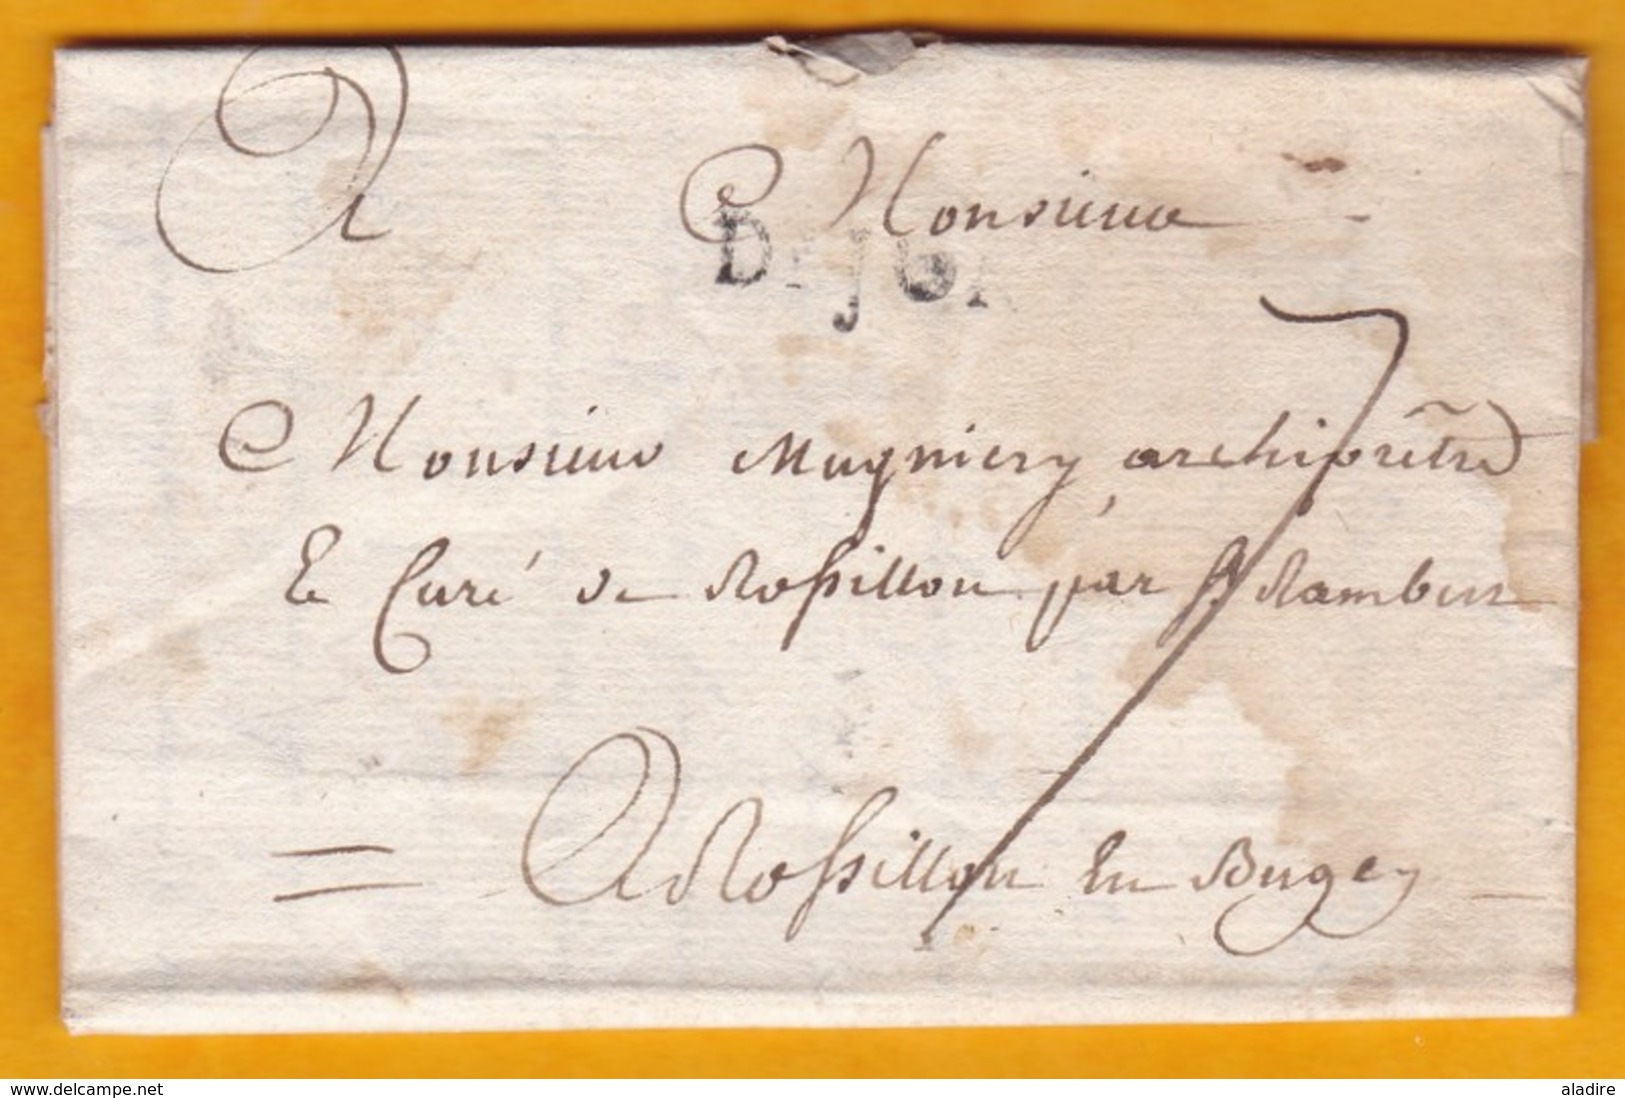 A Monsieur
DIJON
Monsieur Mugniery archiprêtre
& Curé de Rossillon par St Rambert
A Rossillon En Bugey
7
www.delcampe.net
aladire